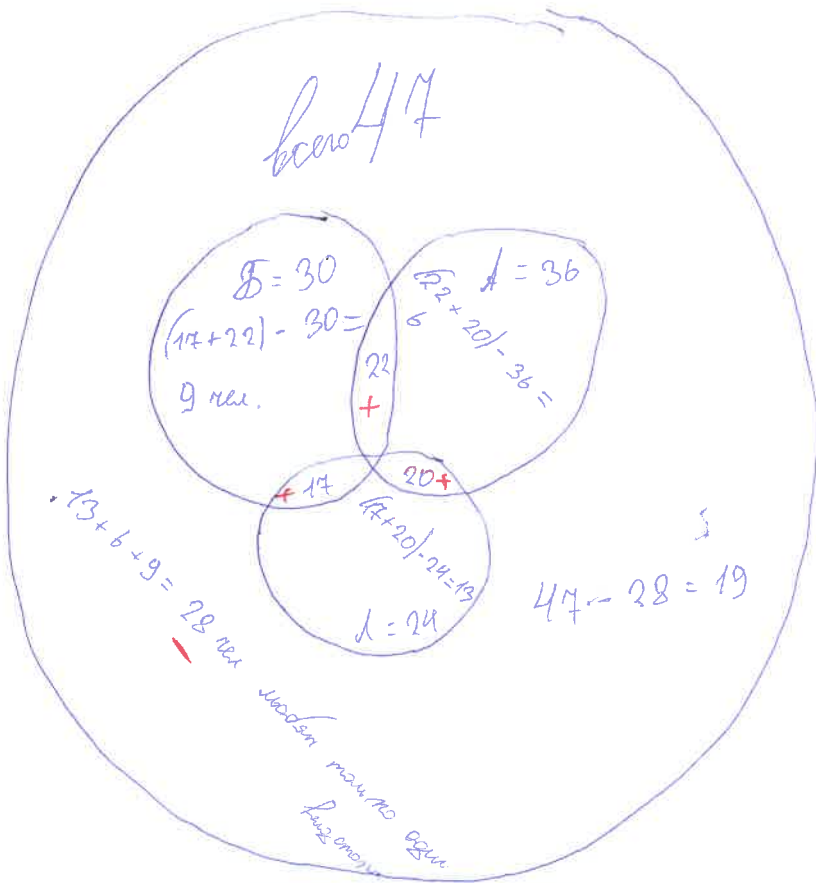 всего 47
Б = 30
(17+22) - 30 =
9 чел.
22
+
А = 36
(22 + 20) - 36 =
6
+ 17
20 +
(17+20) - 24 = 13
Л = 24
13 + 6 + 9 = 28 чел любят только один
47 - 28 = 19